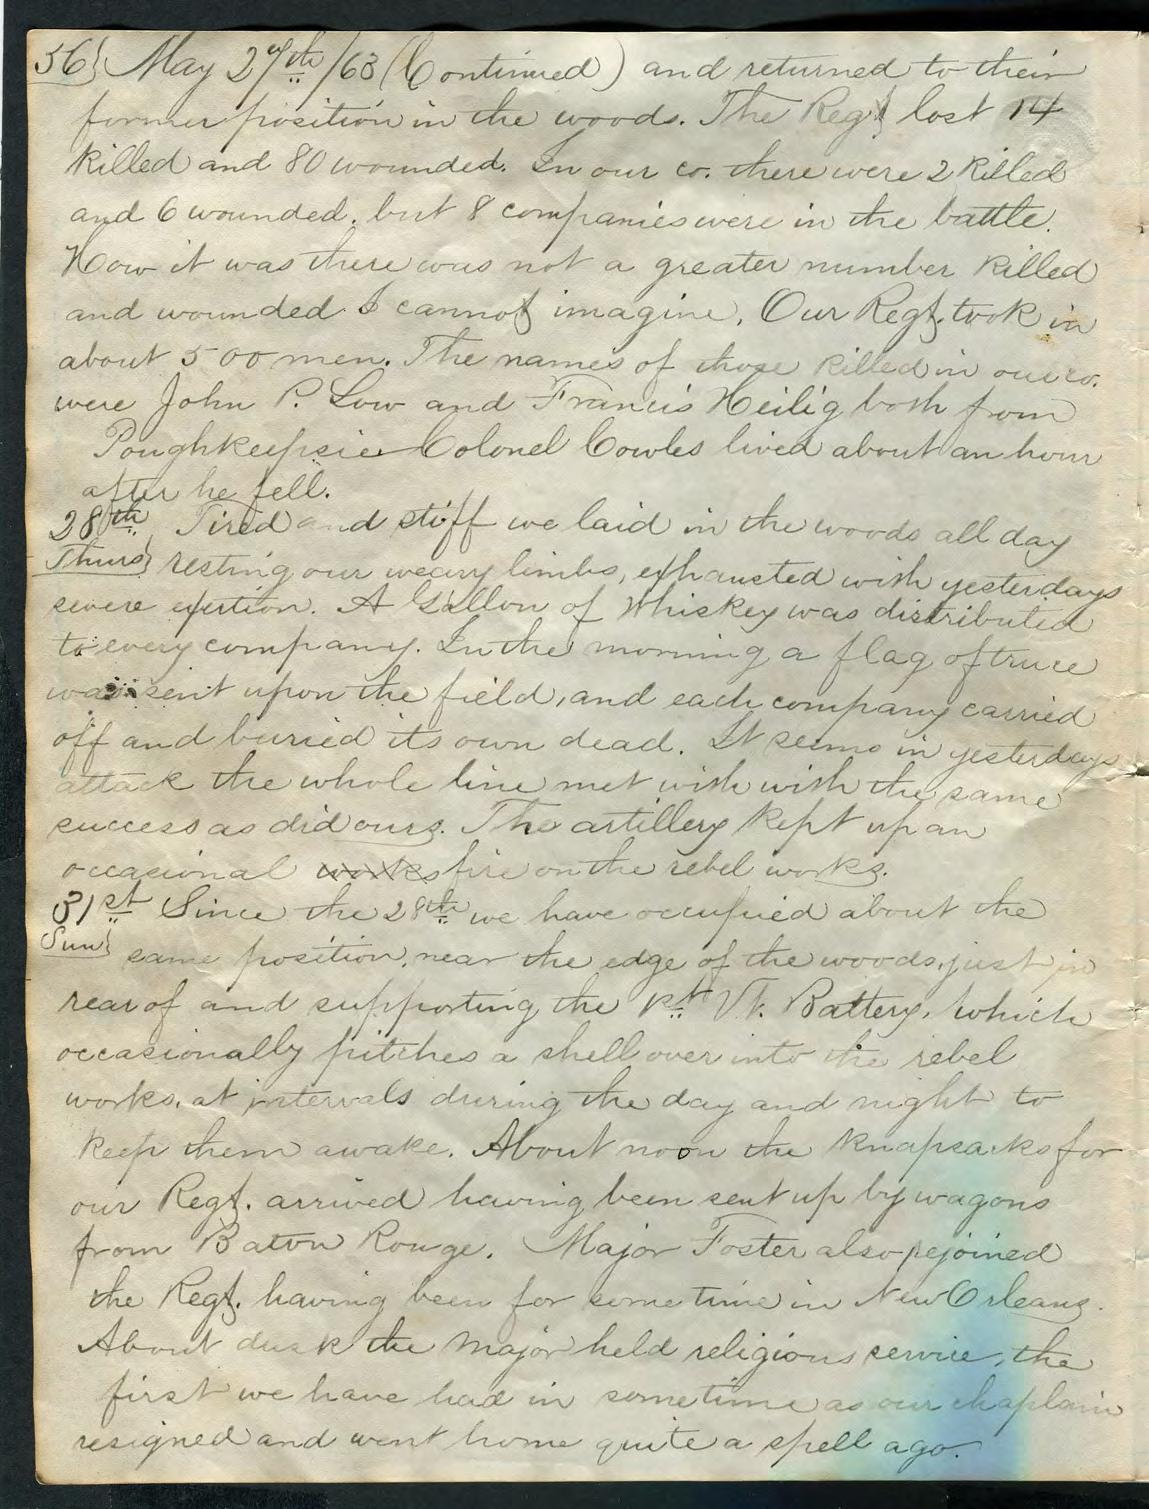 56} May 27th/63 (Continued) and returned to their
former position in the woods. The Regt lost 14
killed and 80 wounded. In our co. there were 2 killed
and 6 wounded, but 8 companies were in the battle.
How it was there was not a greater number killed
and wounded I cannot imagine. Our Regt. took in
about 500 men. The names of those killed in our co.
were John P. Low and Francis Heilig both from
Poughkeepsie Colonel Cowles lived about an hour
after he fell.
28th Tired and stiff we laid in the woods all day
Thurs} resting our weary limbs, exhausted with yesterdays
severe exertion. A Gallon of Whiskey was distributed
to every company. In the morning a flag of truce
was sent upon the field, and each company carried
off and buried its own dead. It seems in yesterdays
attack the whole line met with with the same
success as did ours. The artillery kept up an
occasional works fire on the rebel works.
31st Since the 28th we have occupied about the
Sun} same position, near the edge of the woods, just in
rear of and supporting the 1st Vt. Battery, which
occasionally pitches a shell over into the rebel
works, at intervals during the day and night to
keep them awake. About noon the knapsacks for
our Regt. arrived having been sent up by wagons
from Baton Rouge. Major Foster also rejoined
the Regt. having been for some time in New Orleans.
About dusk the Major held religious service, the
first we have had in sometime as our chaplain
resigned and went home quite a spell ago.